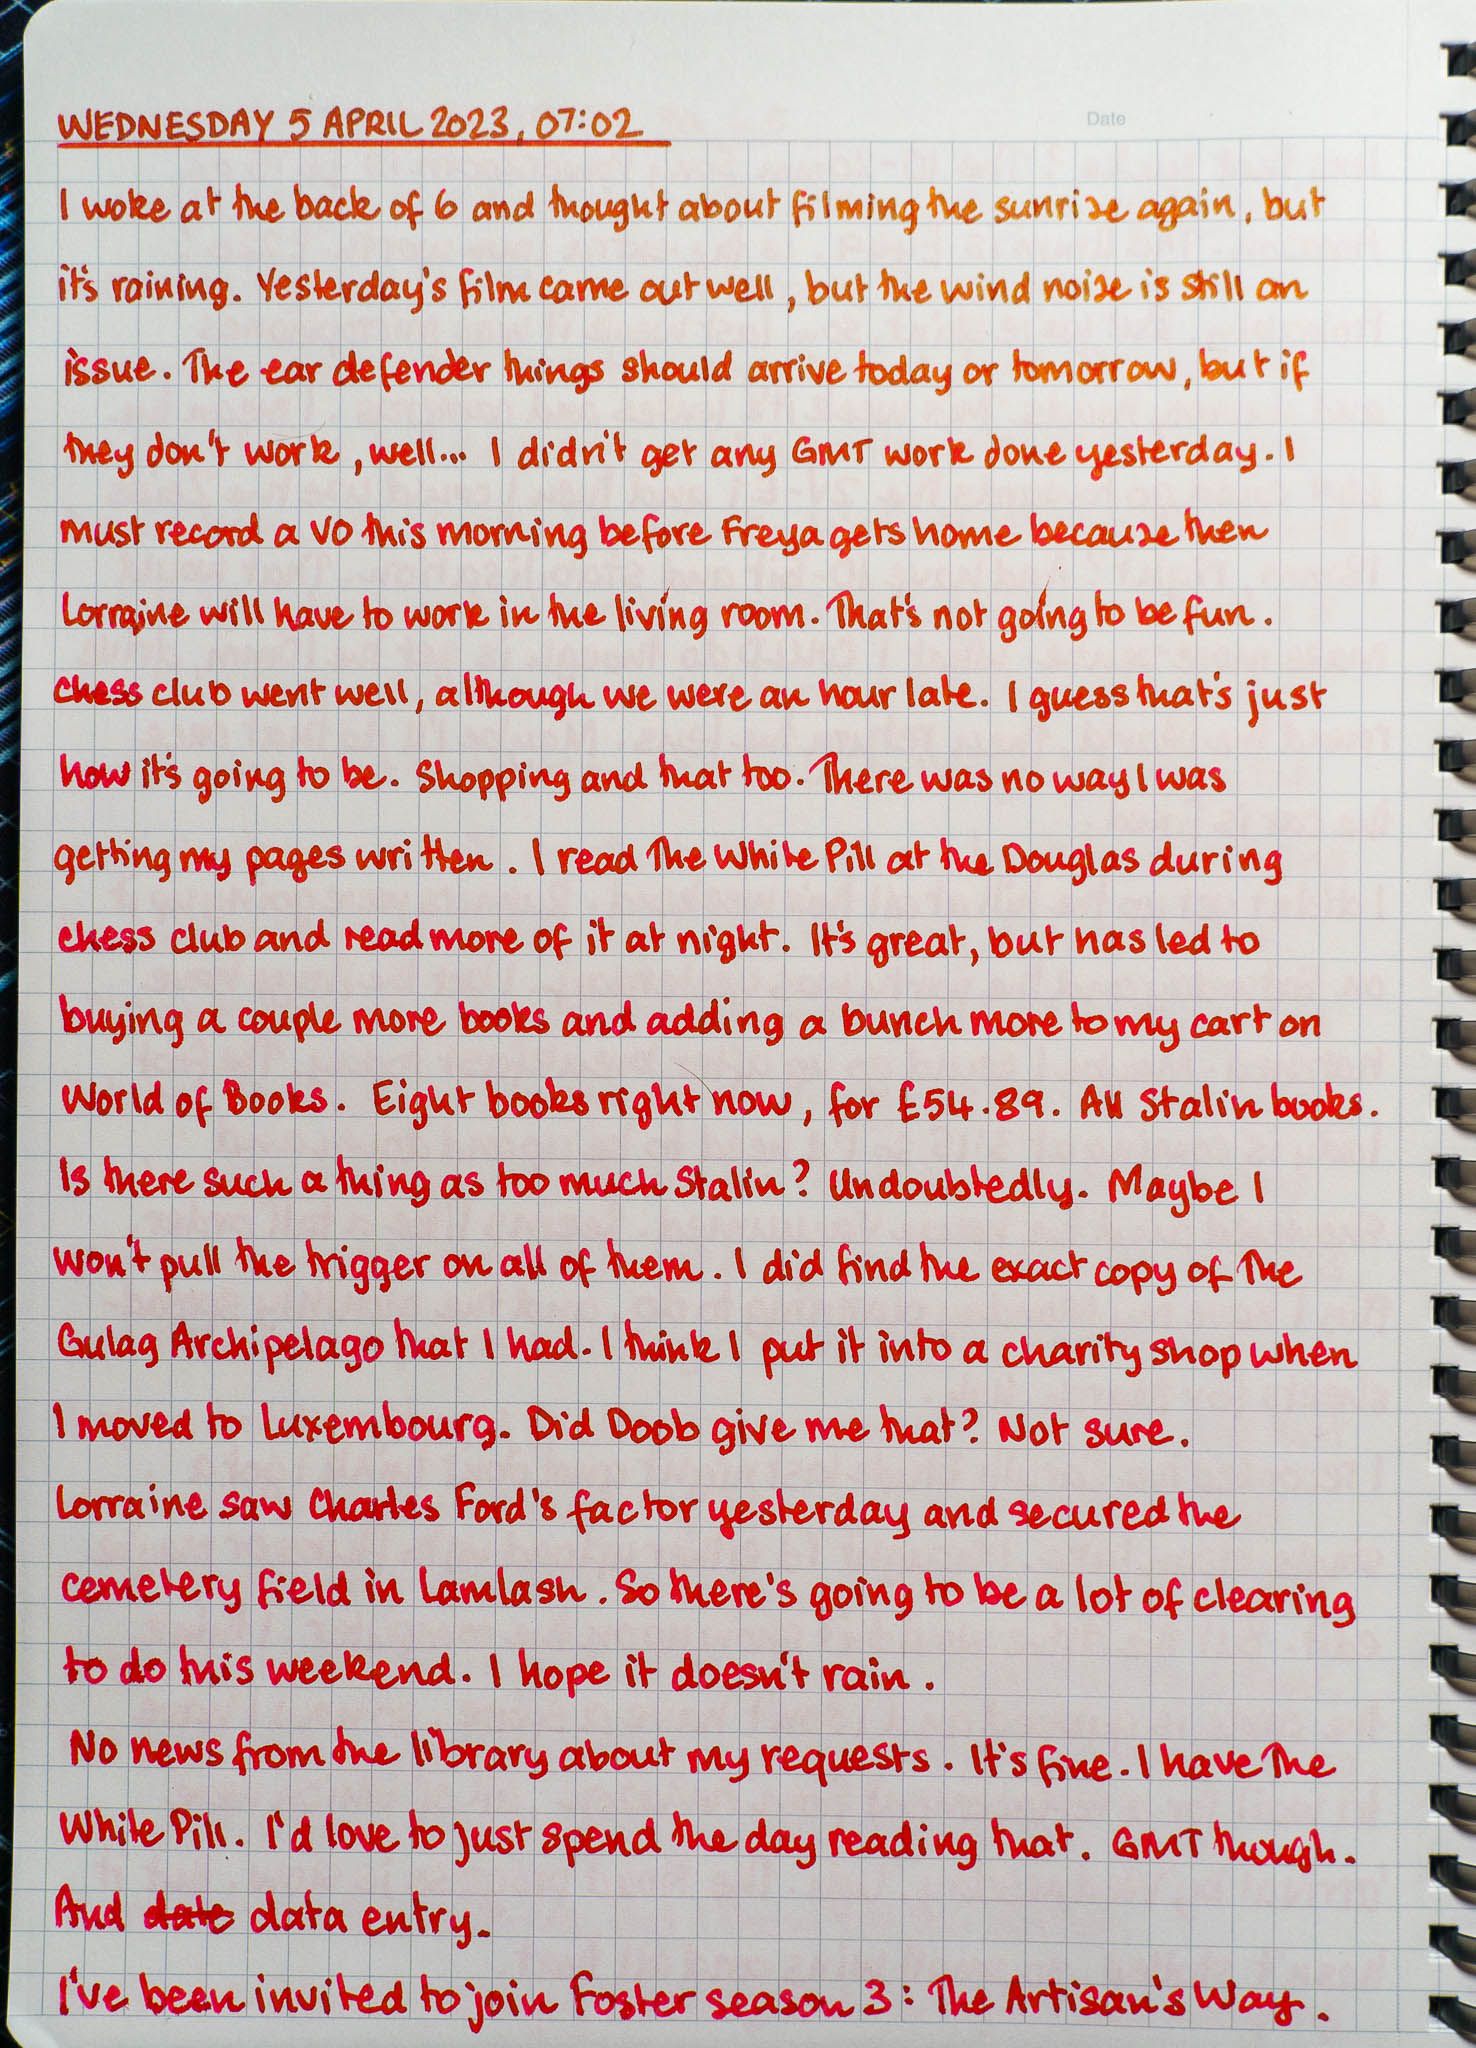 Date
WEDNESDAY 5 APRIL 2023, 07:02
I woke at the back of 6 and thought about filming the sunrise again, but
it's raining. Yesterday's film came out well, but the wind noise is still an
issue. The ear defender things should arrive today or tomorrow, but if
they don't work, well... I didn't get any GMT work done yesterday. I
must record a VO this morning before Freya gets home because then
Lorraine will have to work in the living room. That's not going to be fun.
Chess club went well, although we were an hour late. I guess that's just
how it's going to be. Shopping and that too. There was no way I was
getting my pages written. I read The White Pill at the Douglas during
chess club and read more of it at night. It's great, but has led to
buying a couple more books and adding a bunch more to my cart on
World of Books. Eight books right now, for £54.89. All Stalin books.
Is there such a thing as too much Stalin? Undoubtedly. Maybe I
won't pull the trigger on all of them. I did find the exact copy of The
Gulag Archipelago that I had. I think I put it into a charity shop when
I moved to Luxembourg. Did Doob give me that? Not sure.
Lorraine saw Charles Ford's factor yesterday and secured the
cemetery field in Lamlash. So there's going to be a lot of clearing
to do this weekend. I hope it doesn't rain.
No news from the library about my requests. It's fine. I have The
White Pill. I'd love to just spend the day reading that. GMT though.
And date data entry.
I've been invited to join Foster season 3: The Artisan's Way.